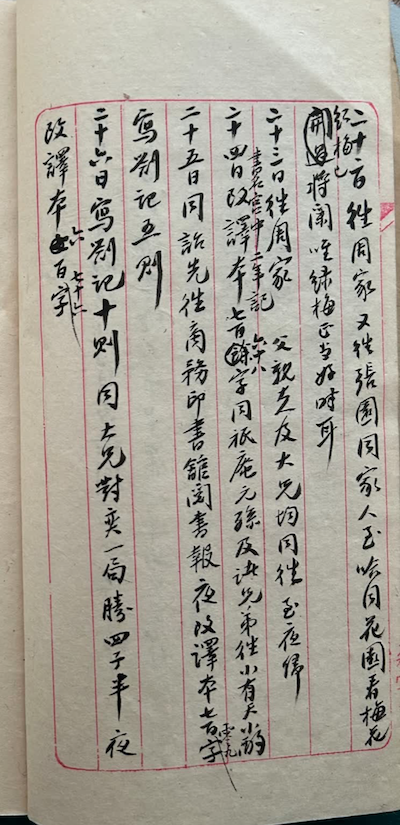 二十二日往周家又往張園同家人至哈同花園看梅花
紅梅已
開過將闌唯綠梅正当好时耳
二十三日往周家 父親走及大兄均同往至夜歸
書名宫中二年記
二十四日改譯本七百餘字同祗庵元孫及諸兄弟往小有天小酌
六十八
二十五日同詒先往商務印書館閱書報夜改譯本七百字
零九
寫劄記五則
二十六日寫劄記十則同大兄對奕一局勝四子半夜
改譯本六百字
七十二